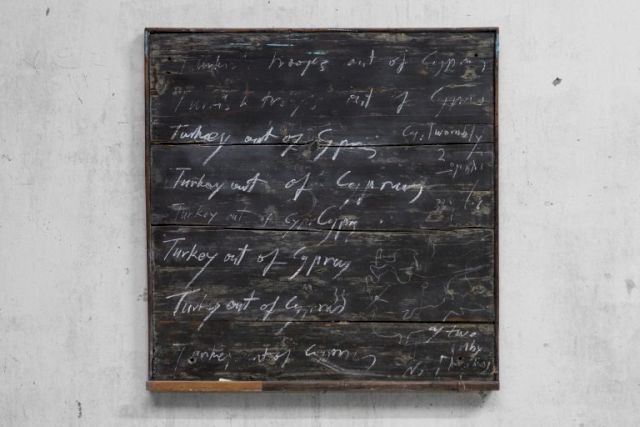 Turkish troops out of Cyprus
Turkish troops out of Cyprus
Turkey out of Cyprus
Cy. Twombly
2
Turkey out of Cyprus
Turkey out of Cyprus
Turkey out of Cyprus
Turkey out of Cyprus
cy two
Turkey out of Cyprus